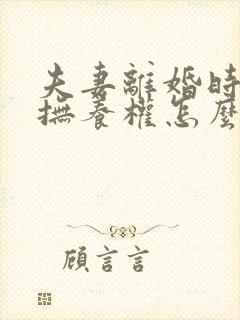 夫妻離婚時
撫養權怎麼
顧言言